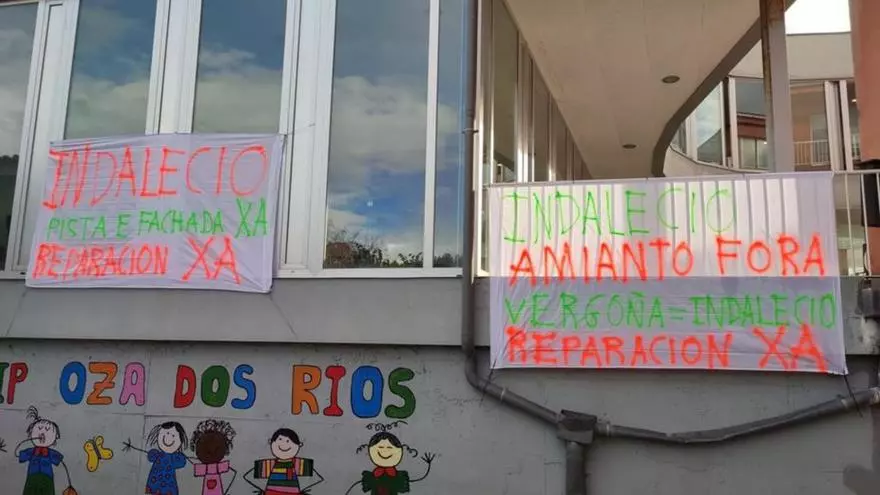 INDALECIO
PISTA E FACHADA XA
REPARACION XA
INDALECIO
AMIANTO FORA
VERGOÑA = INDALECIO
REPARACION XA
IP OZA DOS RIOS